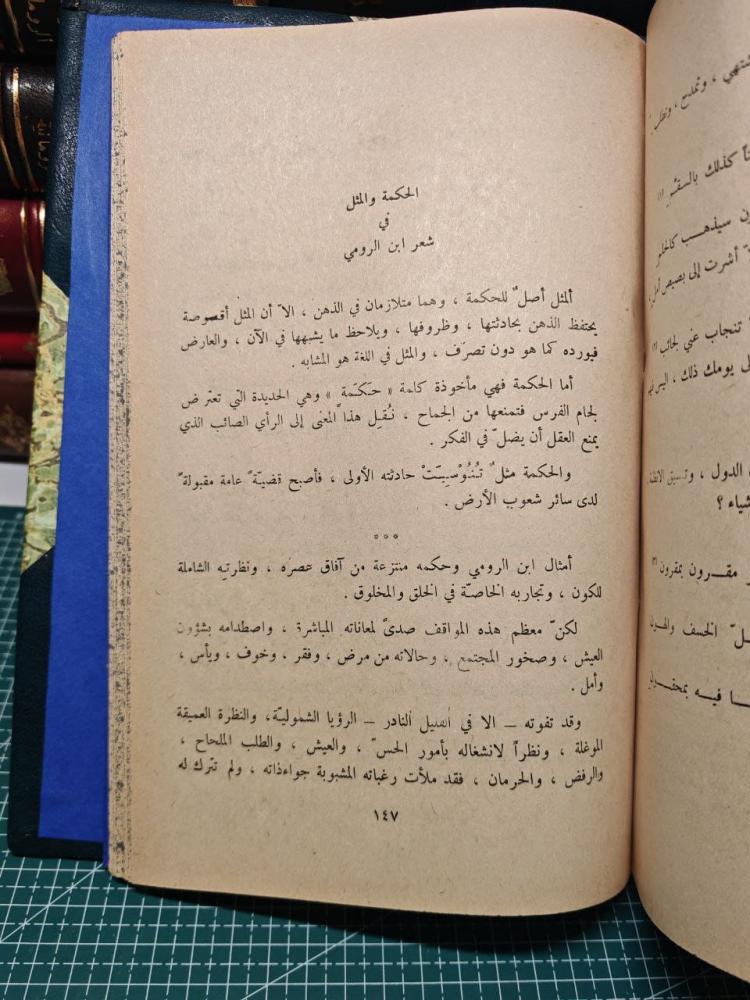 الحكمة والمثل
في
شعر ابن الرومي
ألمثل أصلٌ للحكمة ، وهما متلازمان في الذهن ، الاّ أن المثل أقصوصة
يحتفظ الذهن بحادثتها ، وظروفها ، ويلاحظ ما يشبهها في الآن ، والعارض
فيورده كما هو دون تصرّف ، والمثل في اللغة هو المشابه .
أما الحكمة فهي مأخوذة كلمة « حَكَمَة » وهي الحديدة التي تعترض
لجام الفرس فتمنعها من الجماح ، نُقِل هذا المعنى إلى الرأي الصائب الذي
يمنع العقل أن يضلّ في الفكر .
والحكمة مثلٌ تُنُوْسِيَتْ حادثته الأولى ، فأصبح قضيّةً عامة مقبولةً
لدى سائر شعوب الأرض .
٥٥٥
أمثال ابن الرومي وحكمه منتزعة من آفاق عصره ، ونظرته الشاملة
للكون ، وتجاربه الخاصّة في الخلق والمخلوق .
لكنّ معظم هذه المواقف صدىً لمعاناته المباشرة ، واصطدامه بشؤون
العيش ، وصخور المجتمع ، وحالاته من مرض ، وفقر ، وخوف ، ويأس ،
وأمل .
وقد تفوته – الا في القليل النادر – الرؤيا الشموليّة، والنظرة العميقة
الموغلة ، ونظراً لانشغاله بأمور الحسّ ، والعيش ، والطلب الملحاح ،
والرفض ، والحرمان ، فقد ملأت رغباته المشبوبة جواءذاته ، ولم تترك له
١٤٧
، وتملح ،
كذلك بالسقم (١)
سيذهب
أشرت إلى
تنجاب عني
يومك ذلك ، اليس
الدول ، وتسبق
مقرون بمقرون (٢)
الخسف
فيه